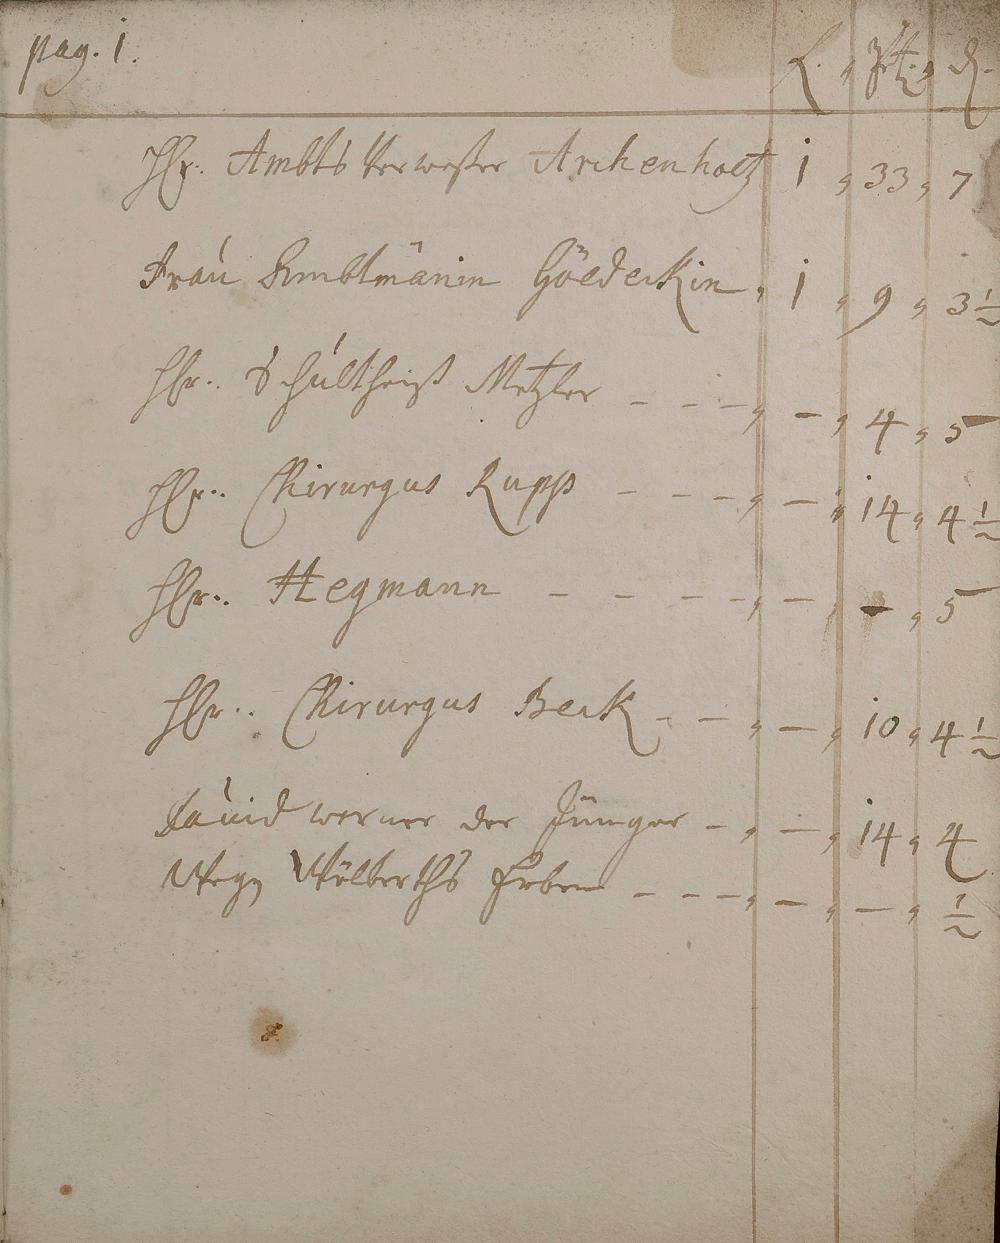 pag. 1. f. „ Xt. „ d.
Hr. Ambts Verweser Archenholtz 1 „ 33 „ 7
Frau Ambtmänin Göedeckin „ 1 „ 9 „ 3 1/2
Hr. Schultheiß Metzler - - - „ - „ 4 „ 5
Hr. Chirurgus Rupp - - - - „ - „ 14 „ 4 1/2
Hr. Hegmann - - - - - „ - „ - „ 5
Hr. Chirurgus Beck - - „ - „ 10 „ 4 1/2
David werner der Jünger - „ - „ 14 „ 4
Wölberths Erben - - - - „ - „ - „ 1/2